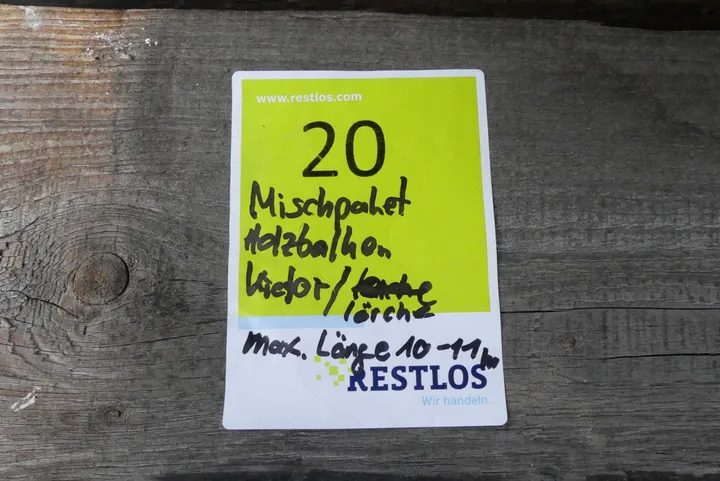 www.restlos.com
20
Mischpaket
Holzbalken
Kiefer/
lärche
max. Länge 10-11m
RESTLOS
Wir handeln.